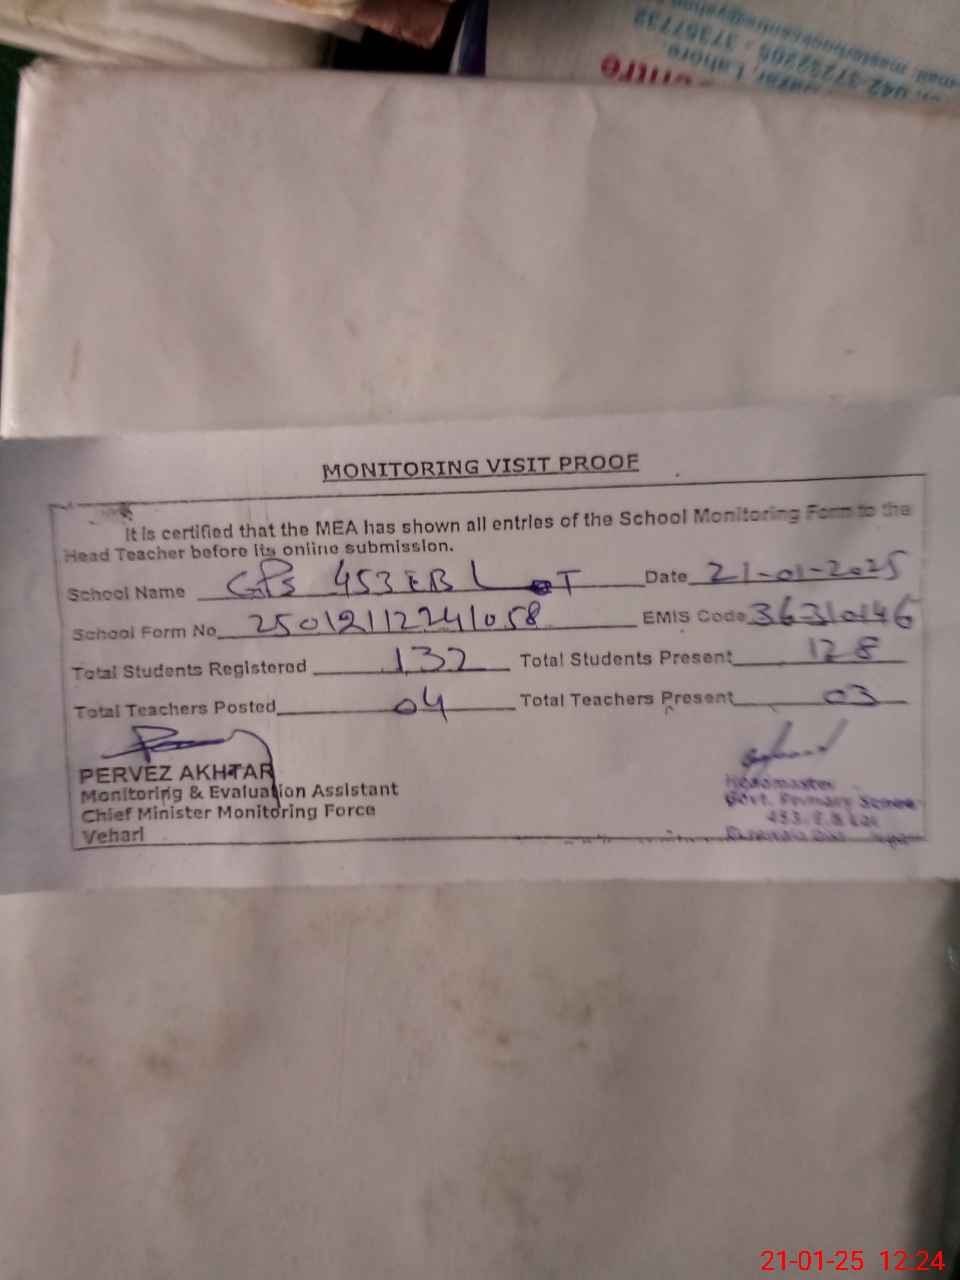 entre
Lahore.
37357732
MONITORING VISIT PROOF
It is certified that the MEA has shown all entries of the School Monitoring Form to the
Head Teacher before its online submission.
School Name GPS 453 EB LOT Date 21-01-2025
School Form No 25012112241058 EMIS Code 36310146
Total Students Registered 132 Total Students Present 128
Total Teachers Posted 04 Total Teachers Present 03
PERVEZ AKHTAR
Monitoring & Evaluation Assistant
Chief Minister Monitoring Force
Vehari
Headmaster
Govt. Primary School
453/E.B Lot
21-01-25 12:24